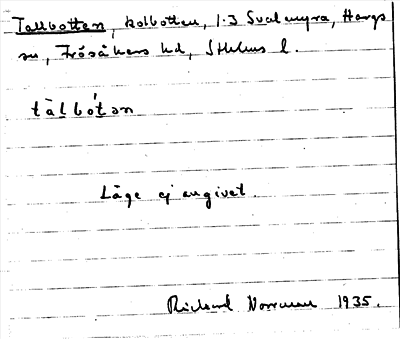 Tallbotten, kolbotten, 1:3 Svalmyra, Hargs
sn, Frösåkers hd, Sthlms l.
tàlbótən
Läge ej angivet.
Richard Norrman 1935.